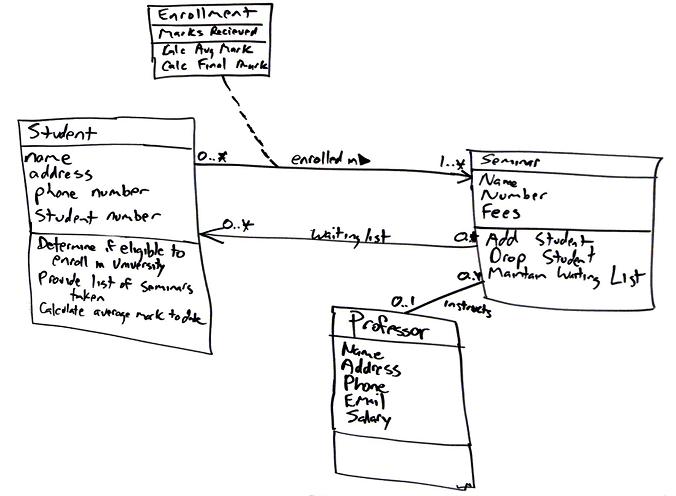 Enrollment
Marks Recieved
Calc Avg Mark
Calc Final Mark
Student
name
address
phone number
Student number
Determine if eligible to
enroll in University
Provide list of Seminars
taken
Calculate average mark to date
0..*
enrolled in
1..*
0..*
Waiting list
0..*
Seminar
Name
Number
Fees
Add Student
Drop Student
Maintan Waiting List
0..*
instructs
0..1
Professor
Name
Address
Phone
Email
Salary